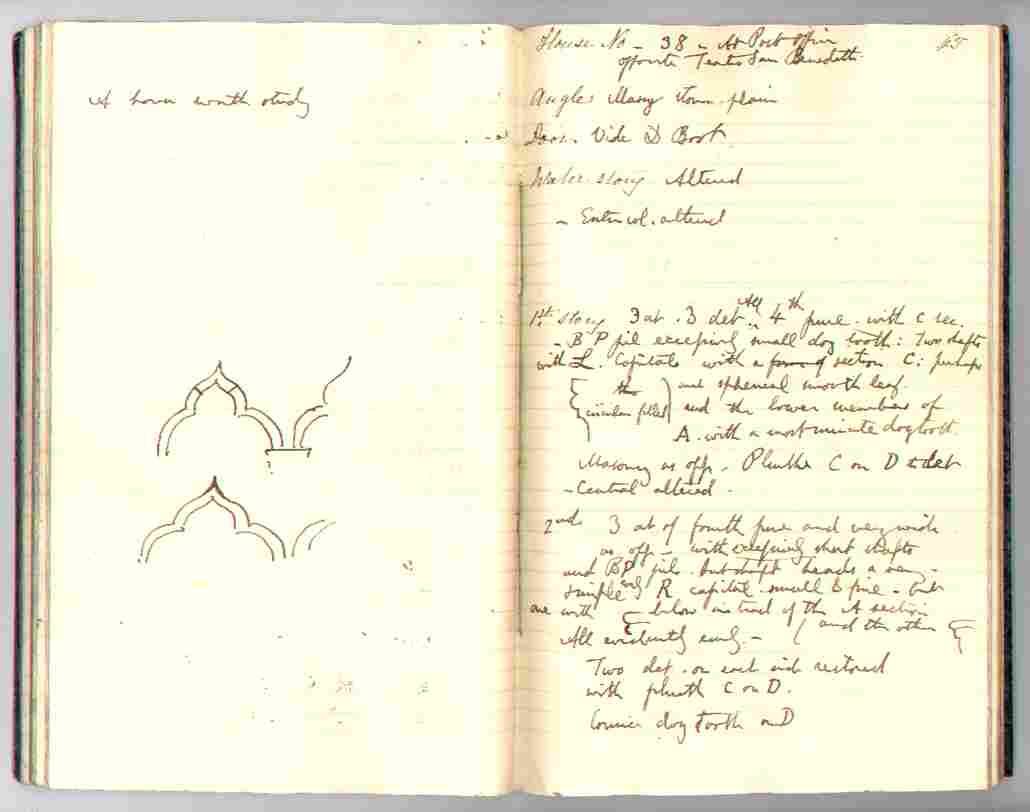 A house worth study
House No - 38 - At Post Office 65
opposite Teatro San Benedetto.
Angles Many stone plain
Door. Vide D Book.
Water story Altered
- Enter col. altered
1st. story 3 at . 3 det. All 4th pure. with C sec.
- B P pil exceedingly small dog tooth: Two shafts
with L. Capitals with a form of section C: perhaps
the and spherical smooth leaf.
circular fillet and the lower members of
A. with a most minute dogtooth.
Masonry as opp. - Plinths C on D to det
- Central altered.
2nd 3 at of fourth pure and very wide
as opp - with exceedingly short shafts
and BP pil. but shaft heads a very
simple R capital. small & fine - but
one with below instead of the A section
All evidently early - and the other
Two det. on each side restored
with plinth C on D.
Cornice dog tooth on D